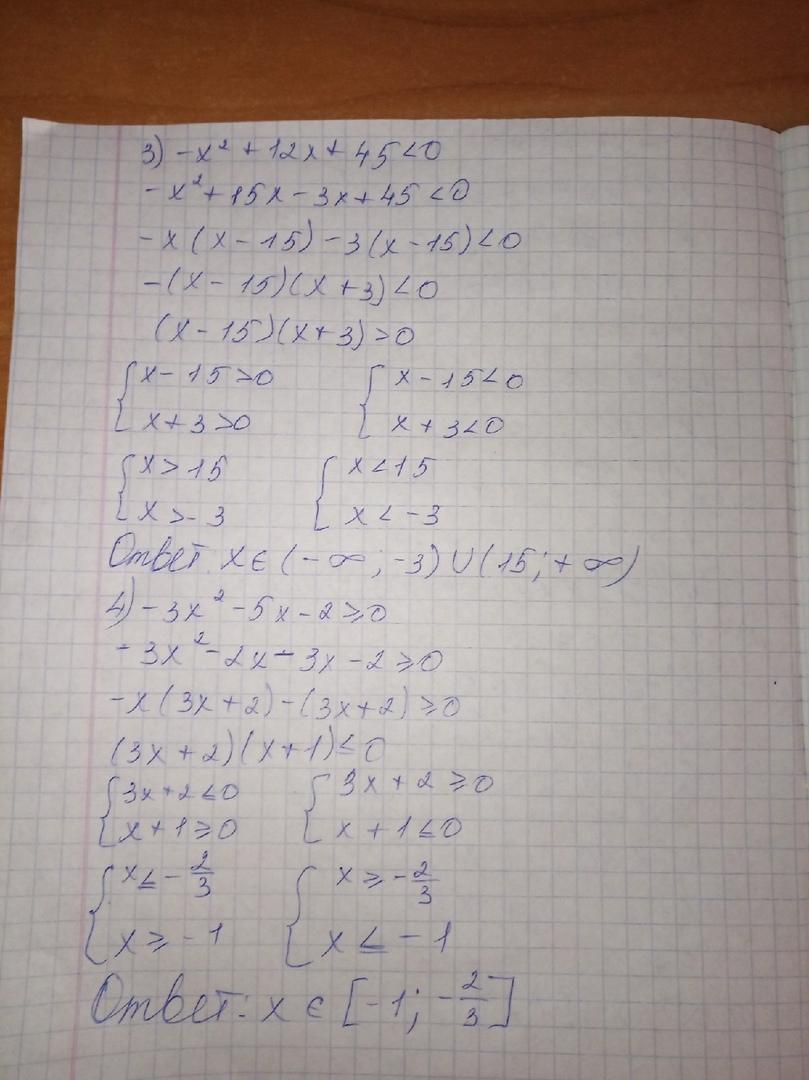 3) -x² + 12x + 45 < 0
-x² + 15x - 3x + 45 < 0
-x(x - 15) - 3(x - 15) < 0
-(x - 15)(x + 3) < 0
(x - 15)(x + 3) > 0
{ x - 15 > 0 { x - 15 < 0
x + 3 > 0 x + 3 < 0
{ x > 15 { x < 15
x > -3 x < -3
Ответ: x ∈ (-∞; -3) ∪ (15; +∞)
4) -3x² - 5x - 2 ⩾ 0
-3x² - 2x - 3x - 2 ⩾ 0
-x(3x + 2) - (3x + 2) ⩾ 0
(3x + 2)(x + 1) ≤ 0
{ 3x + 2 ≤ 0 { 3x + 2 ⩾ 0
x + 1 ⩾ 0 x + 1 ≤ 0
{ x ≤ -2/3 { x ⩾ -2/3
x ⩾ -1 x ≤ -1
Ответ: x ∈ [-1; -2/3]